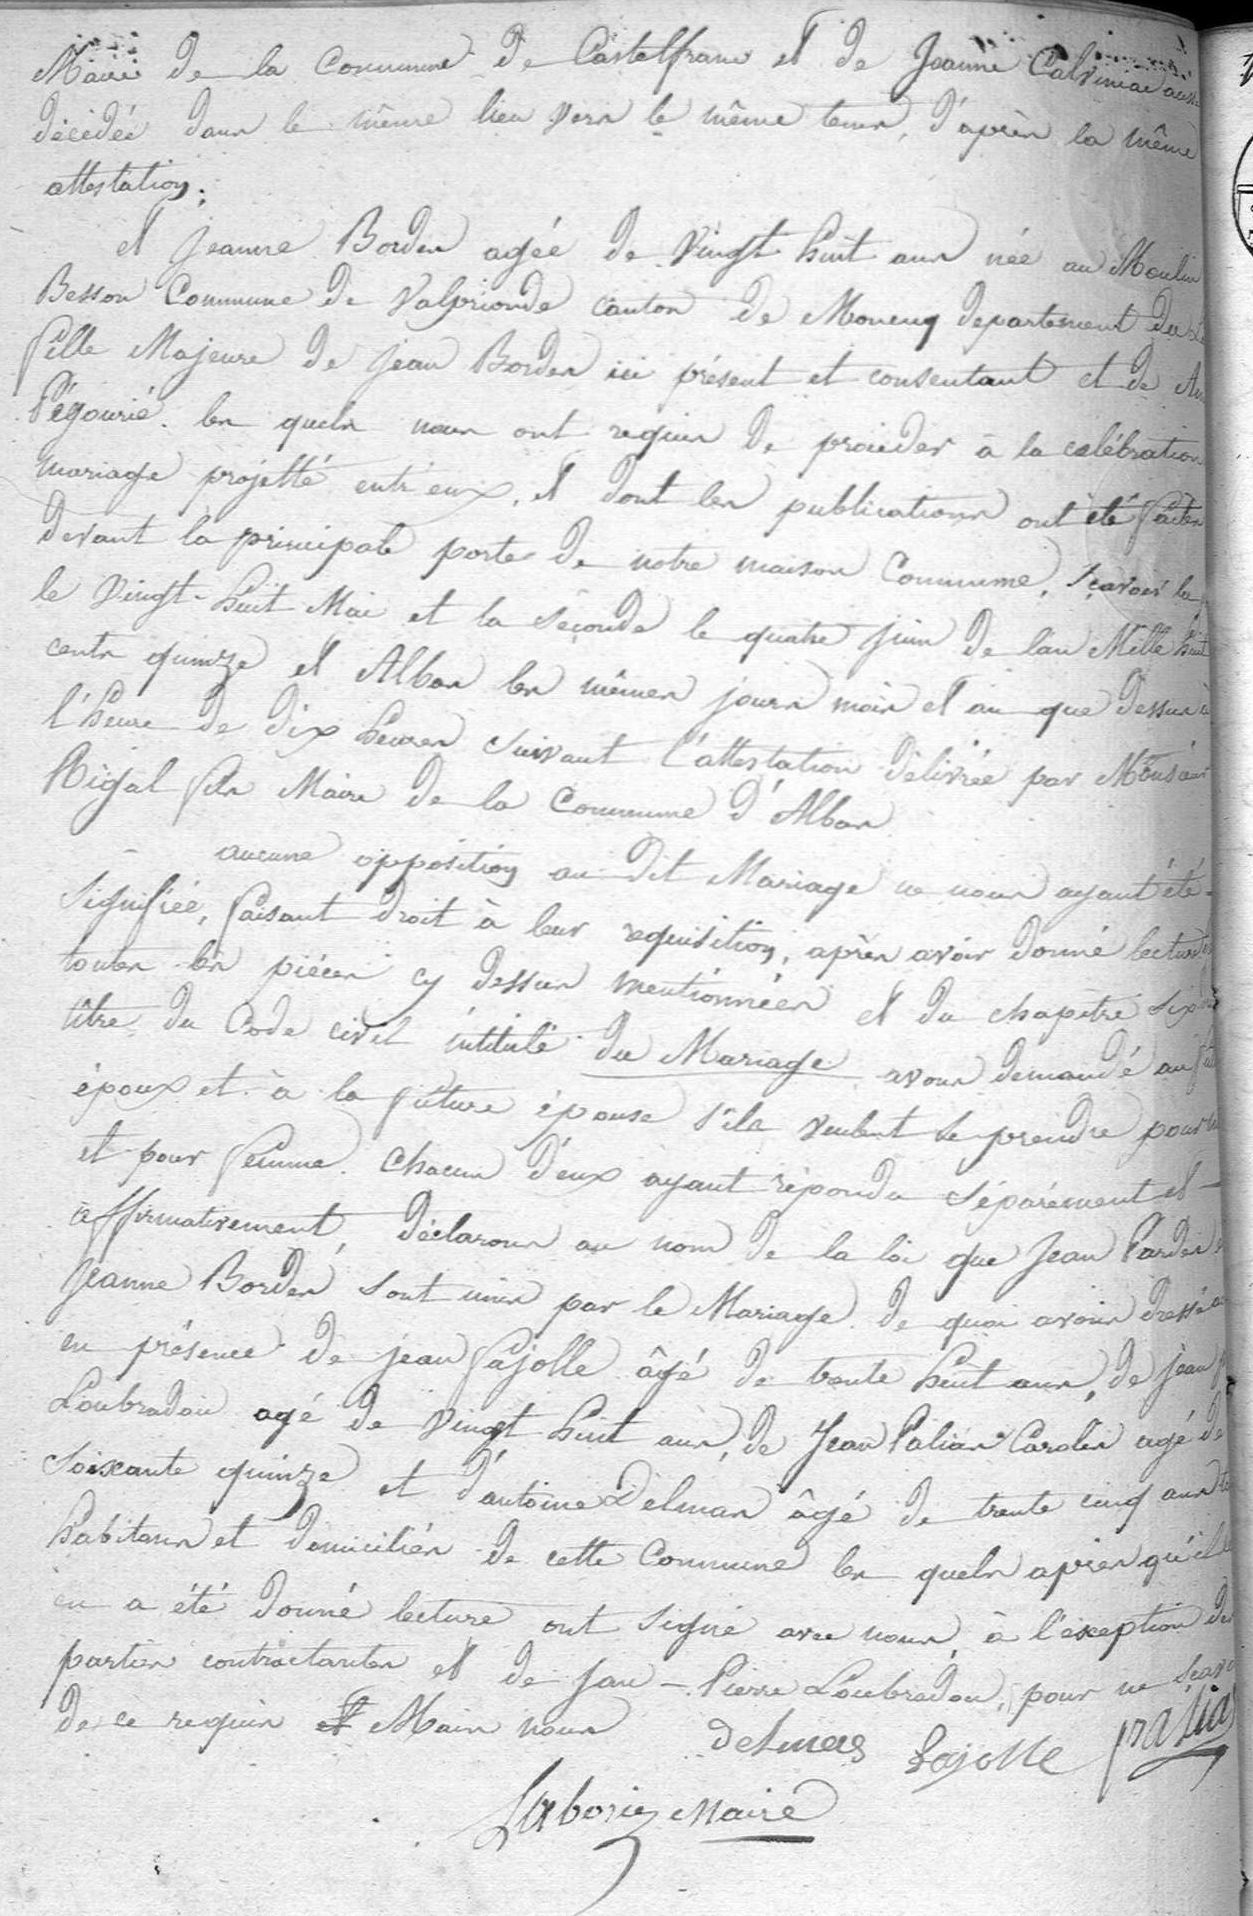 Maire de la Commune de Castelfranc et de Jeanne Calviniac aussi
décédée dans le même lieu vers le même tems, d'après la même
attestation;
et Jeanne Bordes agée de vingt huit ans née au Moulin
Besson Commune de Valprionde canton de Moncuq departement du
fille Majeure de jean Bordes ici présent et consentant et de
Pégourié. les quels nous ont requis de procéder à la célébration
mariage projetté entr'eux, et dont les publications ont été faites
devant la principale porte de notre maison Commune, sçavoir la
le vingt-huit Mai et la séconde le quatre juin de l'an Mille huit
cents quinze et Albas les mêmes jours mois et an que dessus à
l'heure de dix heures suivant l'attestation délivrée par Monsieur
Rigal fils Maire de la Commune d'Albas
aucune opposition au dit Mariage ne nous ayant été
signifiée, faisant droit à leur requisition, après avoir donné lecture
toutes les pièces cy dessus mentionnées et du chapitre six
titre du Code civil intitulé du Mariage avons demandé au
époux et à la future épouse s'ils veulent se prendre pour
et pour femme. chacun d'eux ayant répondu séparément et
affirmativement, déclarons au nom de la loi que Jean Pardes
Jeanne Bordes sont unis par le Mariage. de quoi avons dressé
en présence de jean Lajolle âgé de trente huit ans, de jean
Loubradou agé de vingt huit ans, de Jean Palias Caroles agé de
soixante quinze et d'antoine Delmas âgé de trente cinq ans
habitans et domiciliés de cette Commune les quels apres qu'il
en a été donné lecture ont signé avec nous, à l'exception des
parties contractantes et de jean - Pierre Loubradou, pour ne
de ce requis et Main nous Delmas Lajolle Palias
Laborie Maire